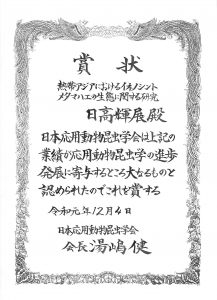 賞状
熱帯アジアにおけるイネノシント
メタマバエの生態に関する研究
日高輝展殿
日本応用動物昆虫学会は上記の
業績が応用動物昆虫学の進歩
発展に寄与するところ大なるものと
認められたのでこれを賞する
令和元年12月4日
日本応用動物昆虫学会
会長 湯嶋健